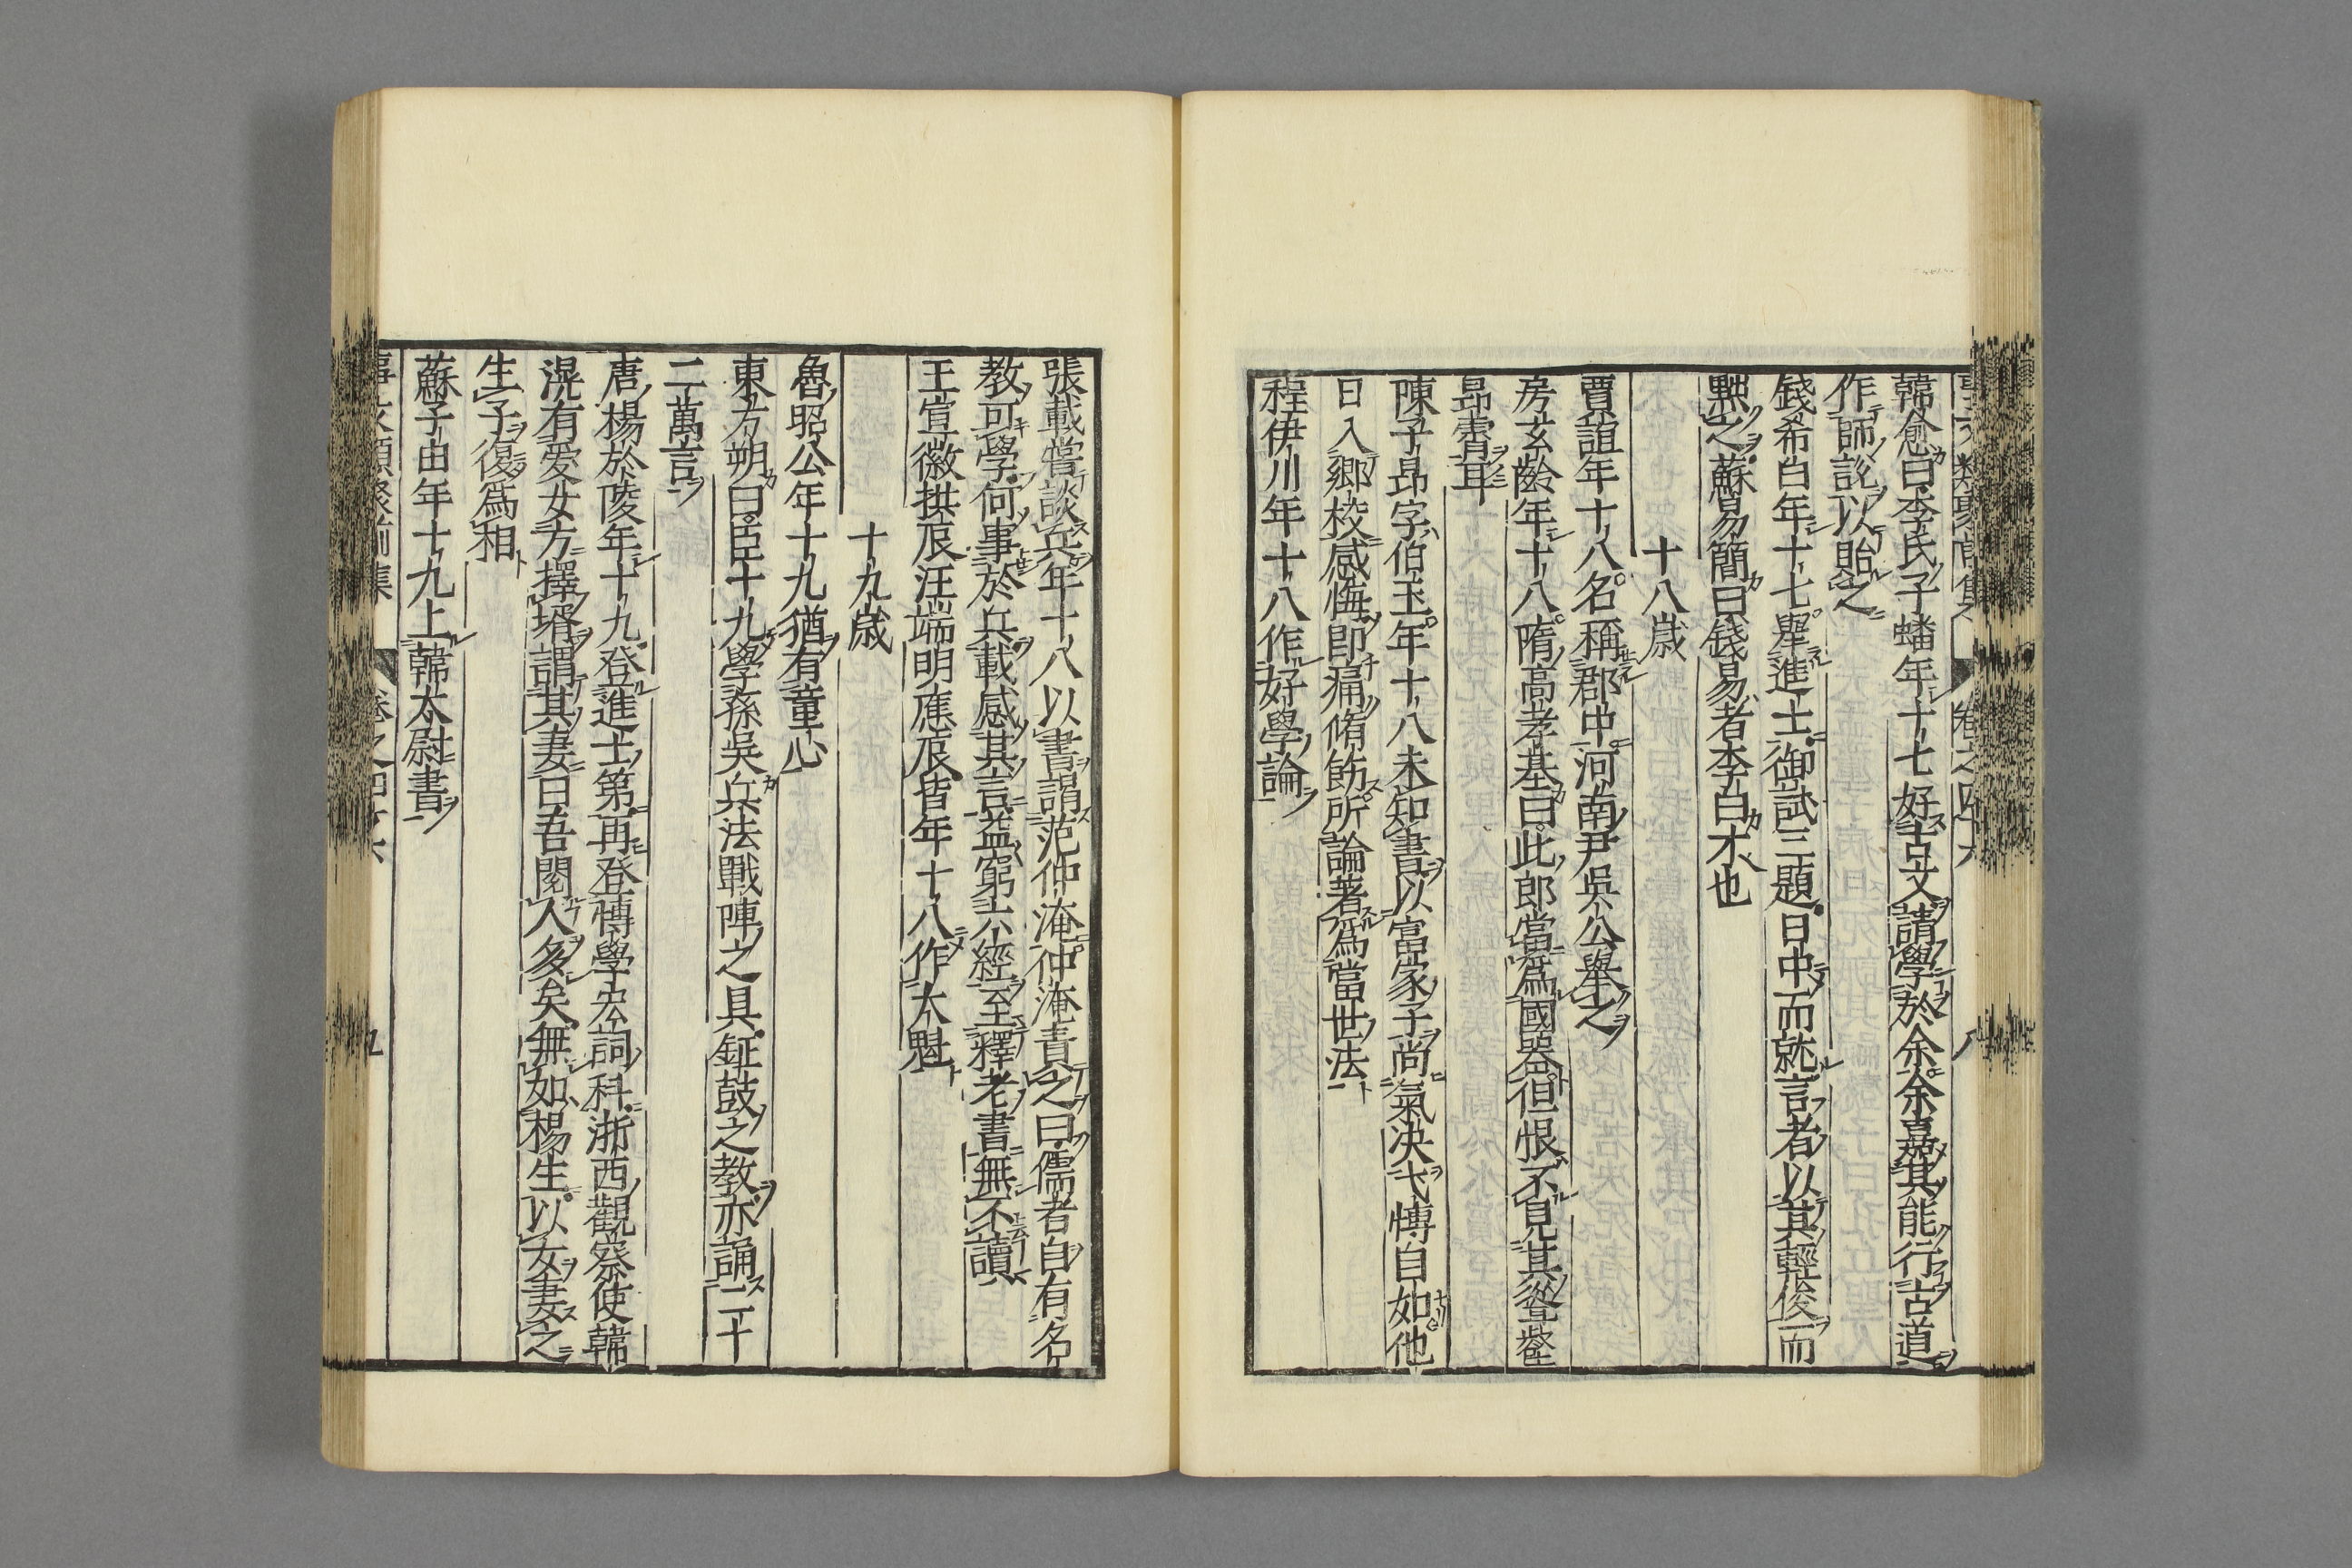 韓愈曰李氏子蟠年十七好古文請學於余余嘉其能行古道
作師說以貽之
錢希白年十七舉進士御試三題日中而就言者以其輕俊而
黜之蘇易簡曰錢易者李白才也
十八歲
賈誼年十八名稱郡中河南尹吳公舉之
房玄齡年十八隋高孝基曰此郎當爲國器但恨不見其聳壑
昂霄耳
陳子昂字伯玉年十八未知書以富家子尚氣决弋博自如他
日入鄉校感悔即痛脩飭所論著爲當世法
程伊川年十八作好學論
張載嘗談兵年十八以書謁范仲淹仲淹責之曰儒者自有名
教可學何事於兵載感其言益窮六經至釋老書無不讀
王宣徽拱辰汪端明應辰皆年十八作大魁
十九歲
魯昭公年十九猶有童心
東方朔曰臣十九學孫吳兵法戰陣之具鉦鼓之教亦誦二十
二萬言
唐楊於陵年十九登進士第再登博學宏詞科浙西觀察使韓
滉有愛女方擇壻謂其妻曰吾閱人多矣無如楊生以女妻之
生子復爲相
蘇子由年十九上韓太尉書